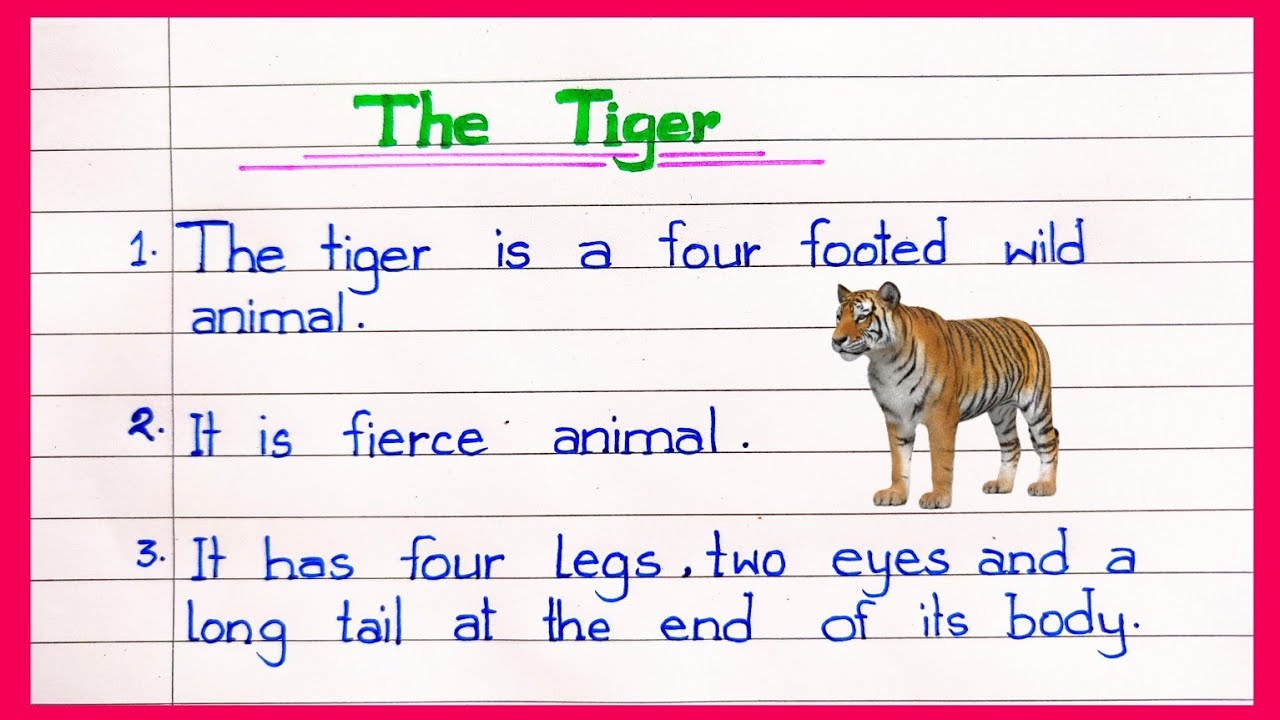 The Tiger
1. The tiger is a four footed wild
animal.
2. It is fierce animal.
3. It has four legs, two eyes and a
long tail at the end of its body.